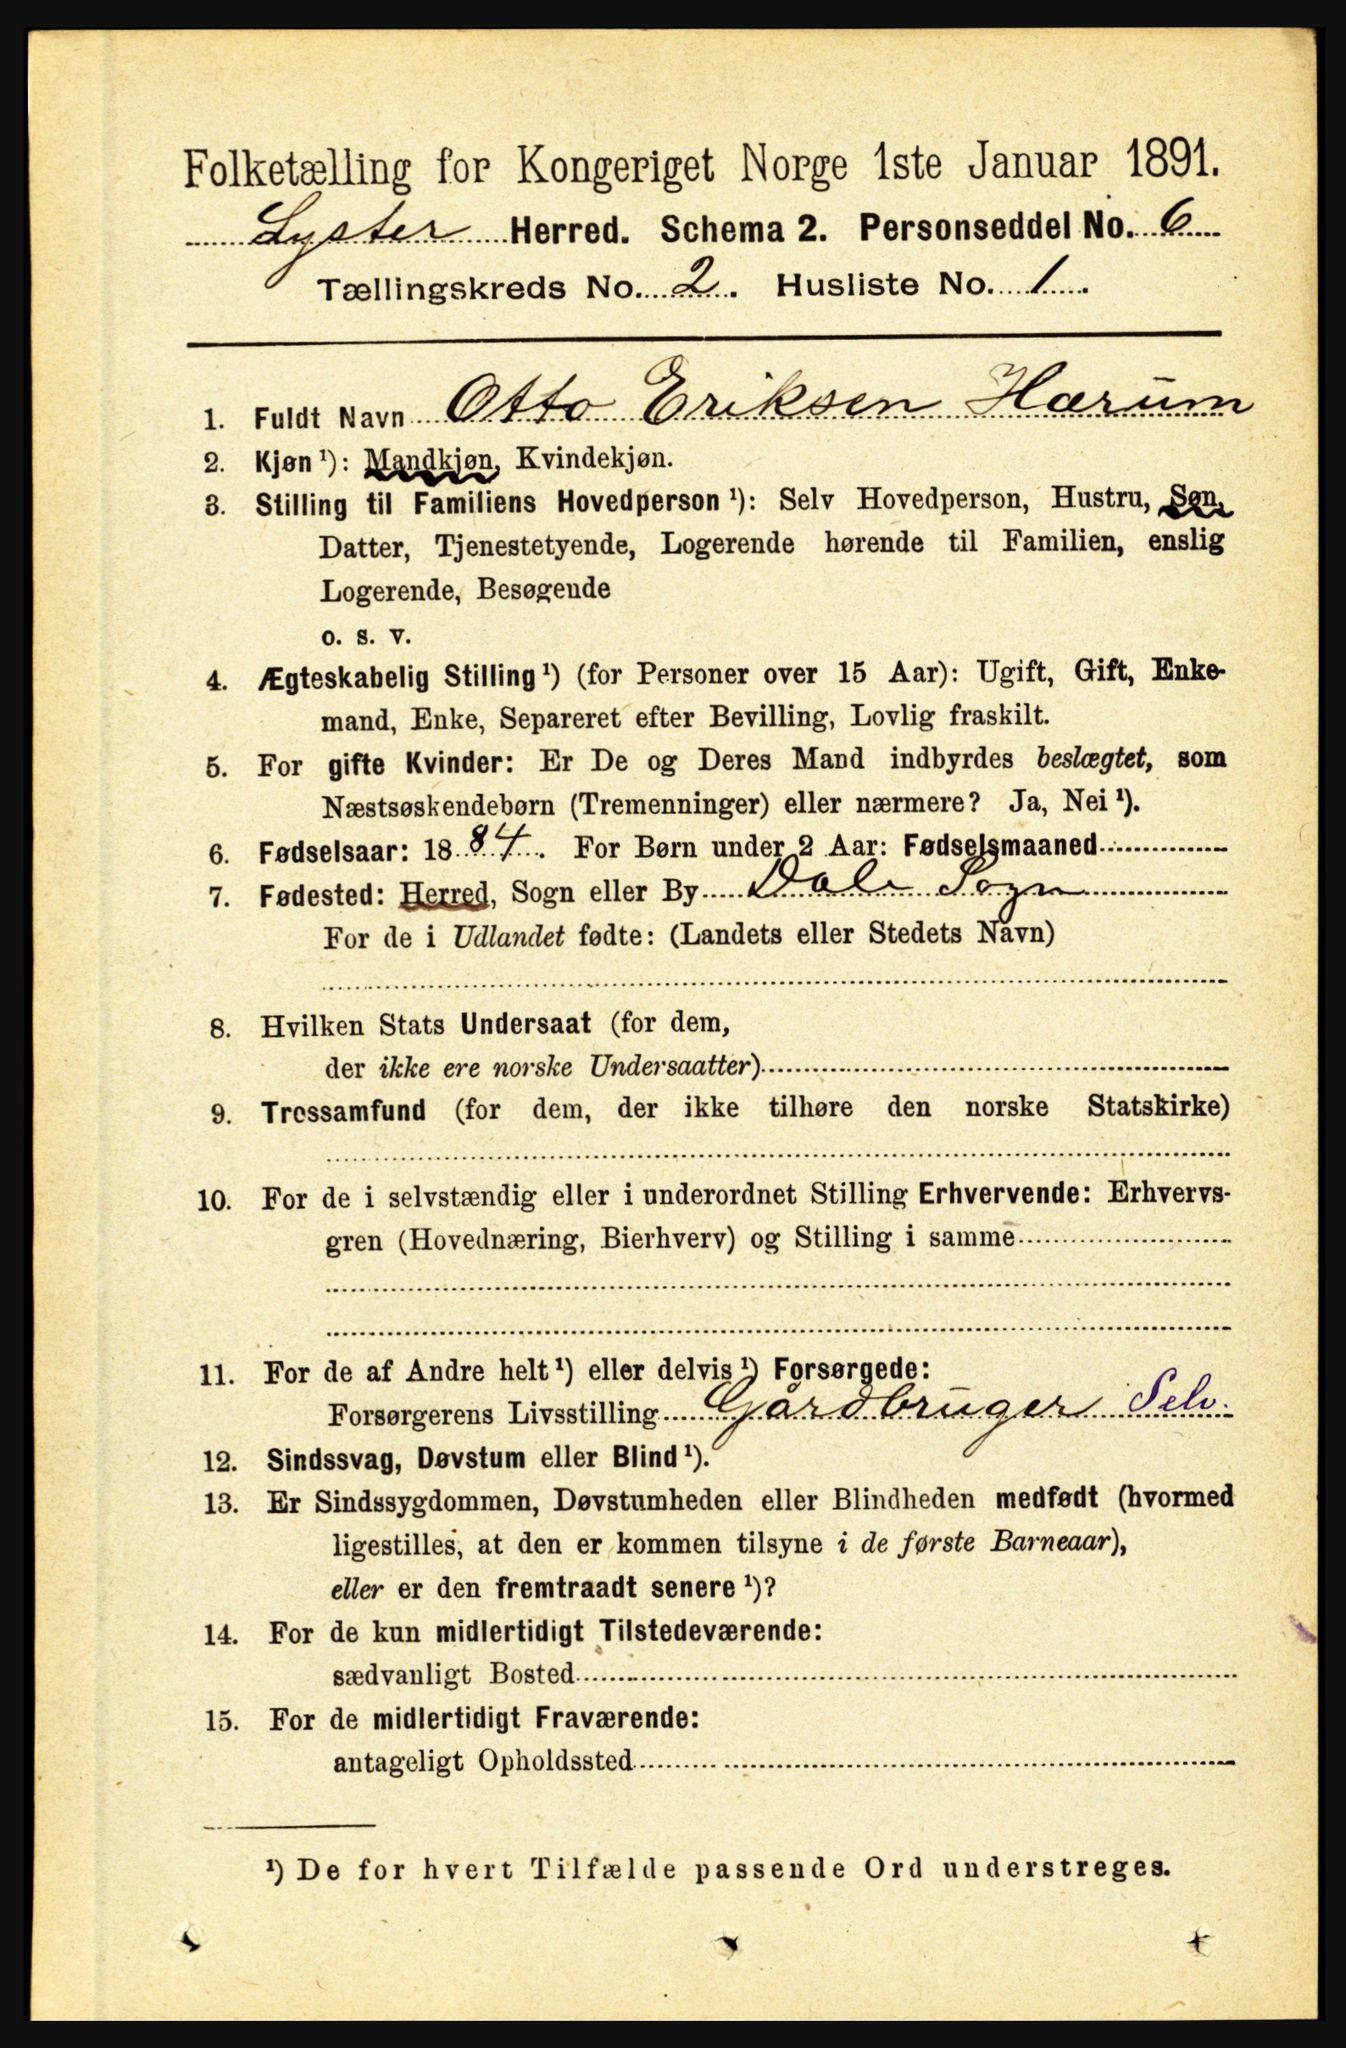 Folketælling for Kongeriget Norge 1ste Januar 1891.
Lyster Herred. Schema 2. Personseddel No. 6
Tællingskreds No. 2. Husliste No. 1.
1. Fuldt Navn Otto Eriksen Hærum
2. Kjøn¹): Mandkjøn, Kvindekjøn.
3. Stilling til Familiens Hovedperson¹): Selv Hovedperson, Hustru, Søn,
Datter, Tjenestetyende, Logerende hørende til Familien, enslig
Logerende, Besøgende
o. s. v.
4. Ægteskabelig Stilling¹) (for Personer over 15 Aar): Ugift, Gift, Enke-
mand, Enke, Separeret efter Bevilling, Lovlig fraskilt.
5. For gifte Kvinder: Er De og Deres Mand indbyrdes beslægtet, som
Næstsøskendebørn (Tremenninger) eller nærmere? Ja, Nei¹).
6. Fødselsaar: 1884. For Børn under 2 Aar: Fødselsmaaned
7. Fødested: Herred, Sogn eller By Dale Sogn
For de i Udlandet fødte: (Landets eller Stedets Navn)
8. Hvilken Stats Undersaat (for dem,
der ikke ere norske Undersaatter)
9. Trossamfund (for dem, der ikke tilhøre den norske Statskirke)
10. For de i selvstændig eller i underordnet Stilling Erhvervende: Erhvervs-
gren (Hovednæring, Bierhverv) og Stilling i samme
11. For de af Andre helt¹) eller delvis¹) Forsørgede:
Forsørgerens Livsstilling Gårdbruger Selv.
12. Sindssvag, Døvstum eller Blind¹).
13. Er Sindssygdommen, Døvstumheden eller Blindheden medfødt (hvormed
ligestilles, at den er kommen tilsyne i de første Barneaar),
eller er den fremtraadt senere¹)?
14. For de kun midlertidigt Tilstedeværende:
sædvanligt Bosted
15. For de midlertidigt Fraværende:
antageligt Opholdssted
¹) De for hvert Tilfælde passende Ord understreges.